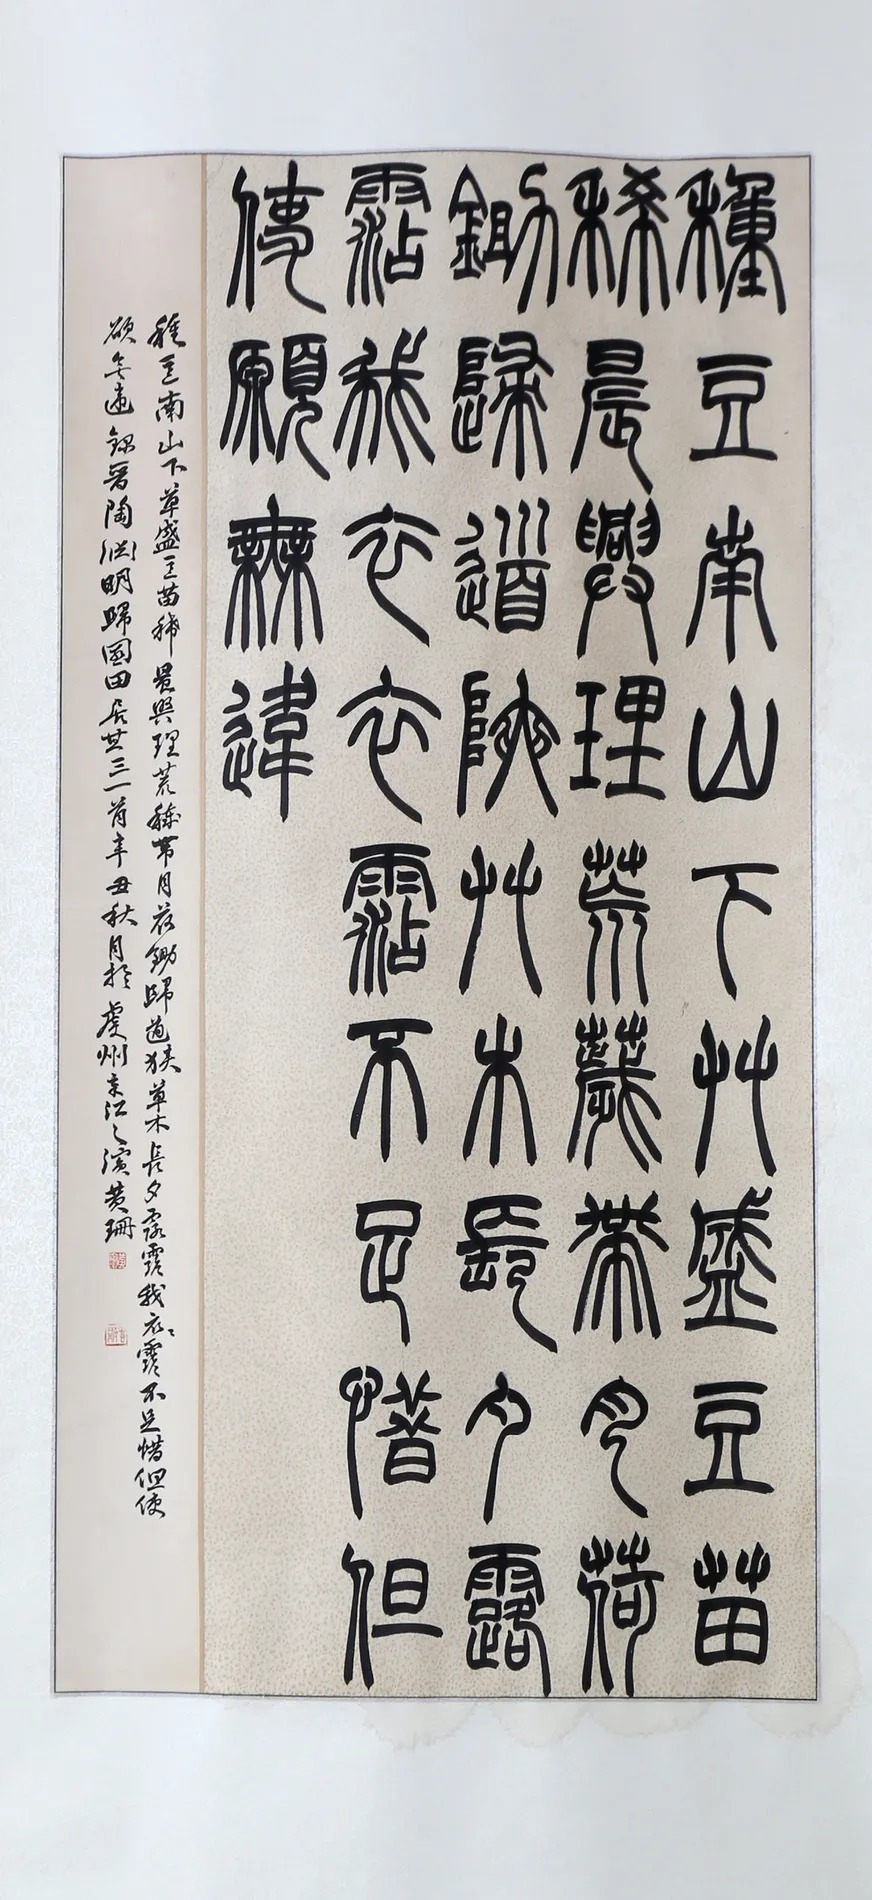 穜豆南山下艸盛豆苗
稀晨興理荒薉帶月荷
鋤歸道陜艸木長夕露
霑我衣衣霑不足惜但
使願無違
種豆南山下草盛豆苗稀晨興理荒穢帶月荷鋤歸道狹草木長夕露霑我衣衣霑不足惜但使
願無違 錄晉陶淵明歸園田居其三一首辛丑秋月於虔州章江之濱黄珊